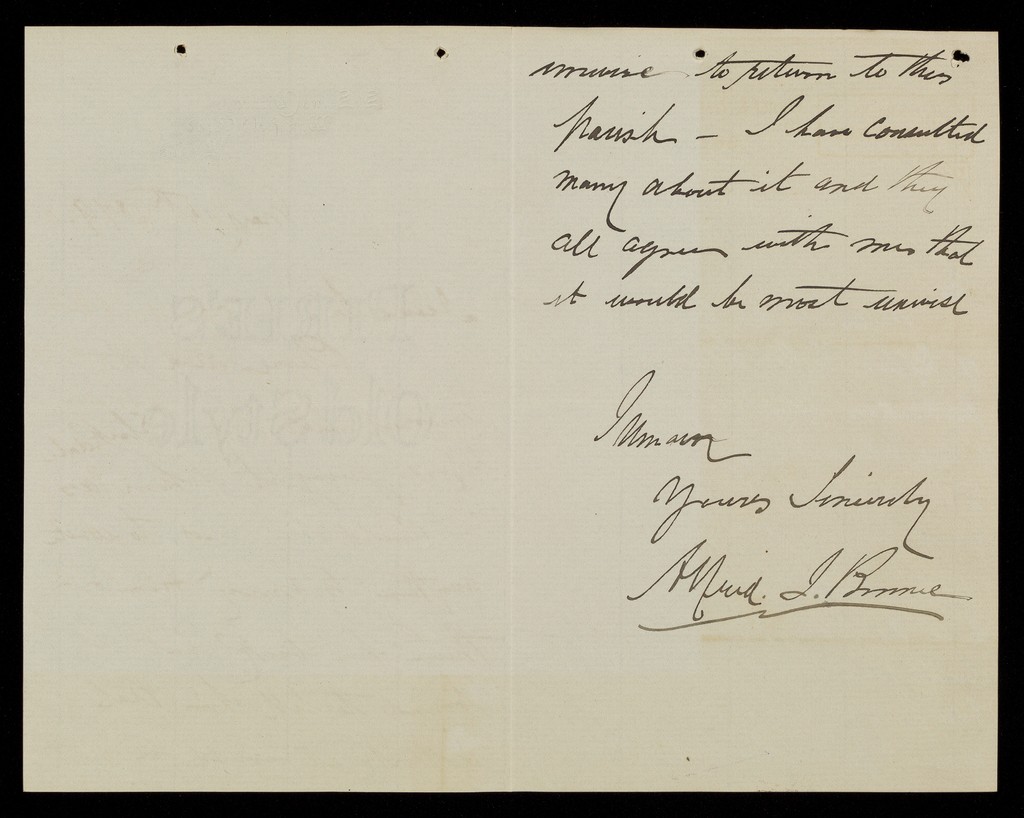 unwise to return to this
Parish - I have consulted
many about it and they
all agree with me that
it would be most unwise
I remain
Yours Sincerely
Alfred. J.